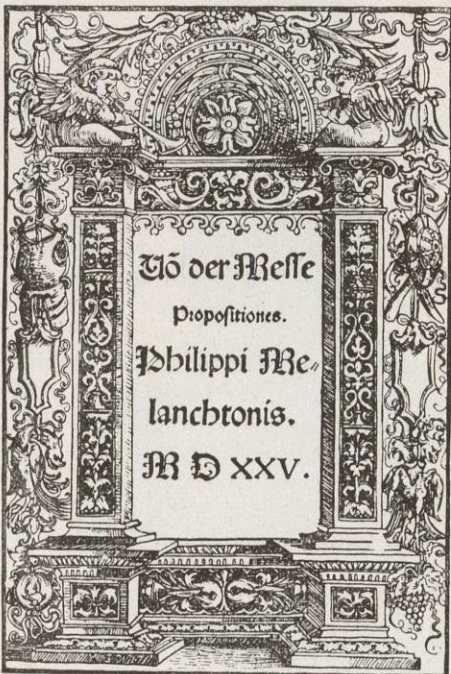 Võ der Messe
Propositiones.
Philippi Me⸗
lanchtonis.
M D XXV.